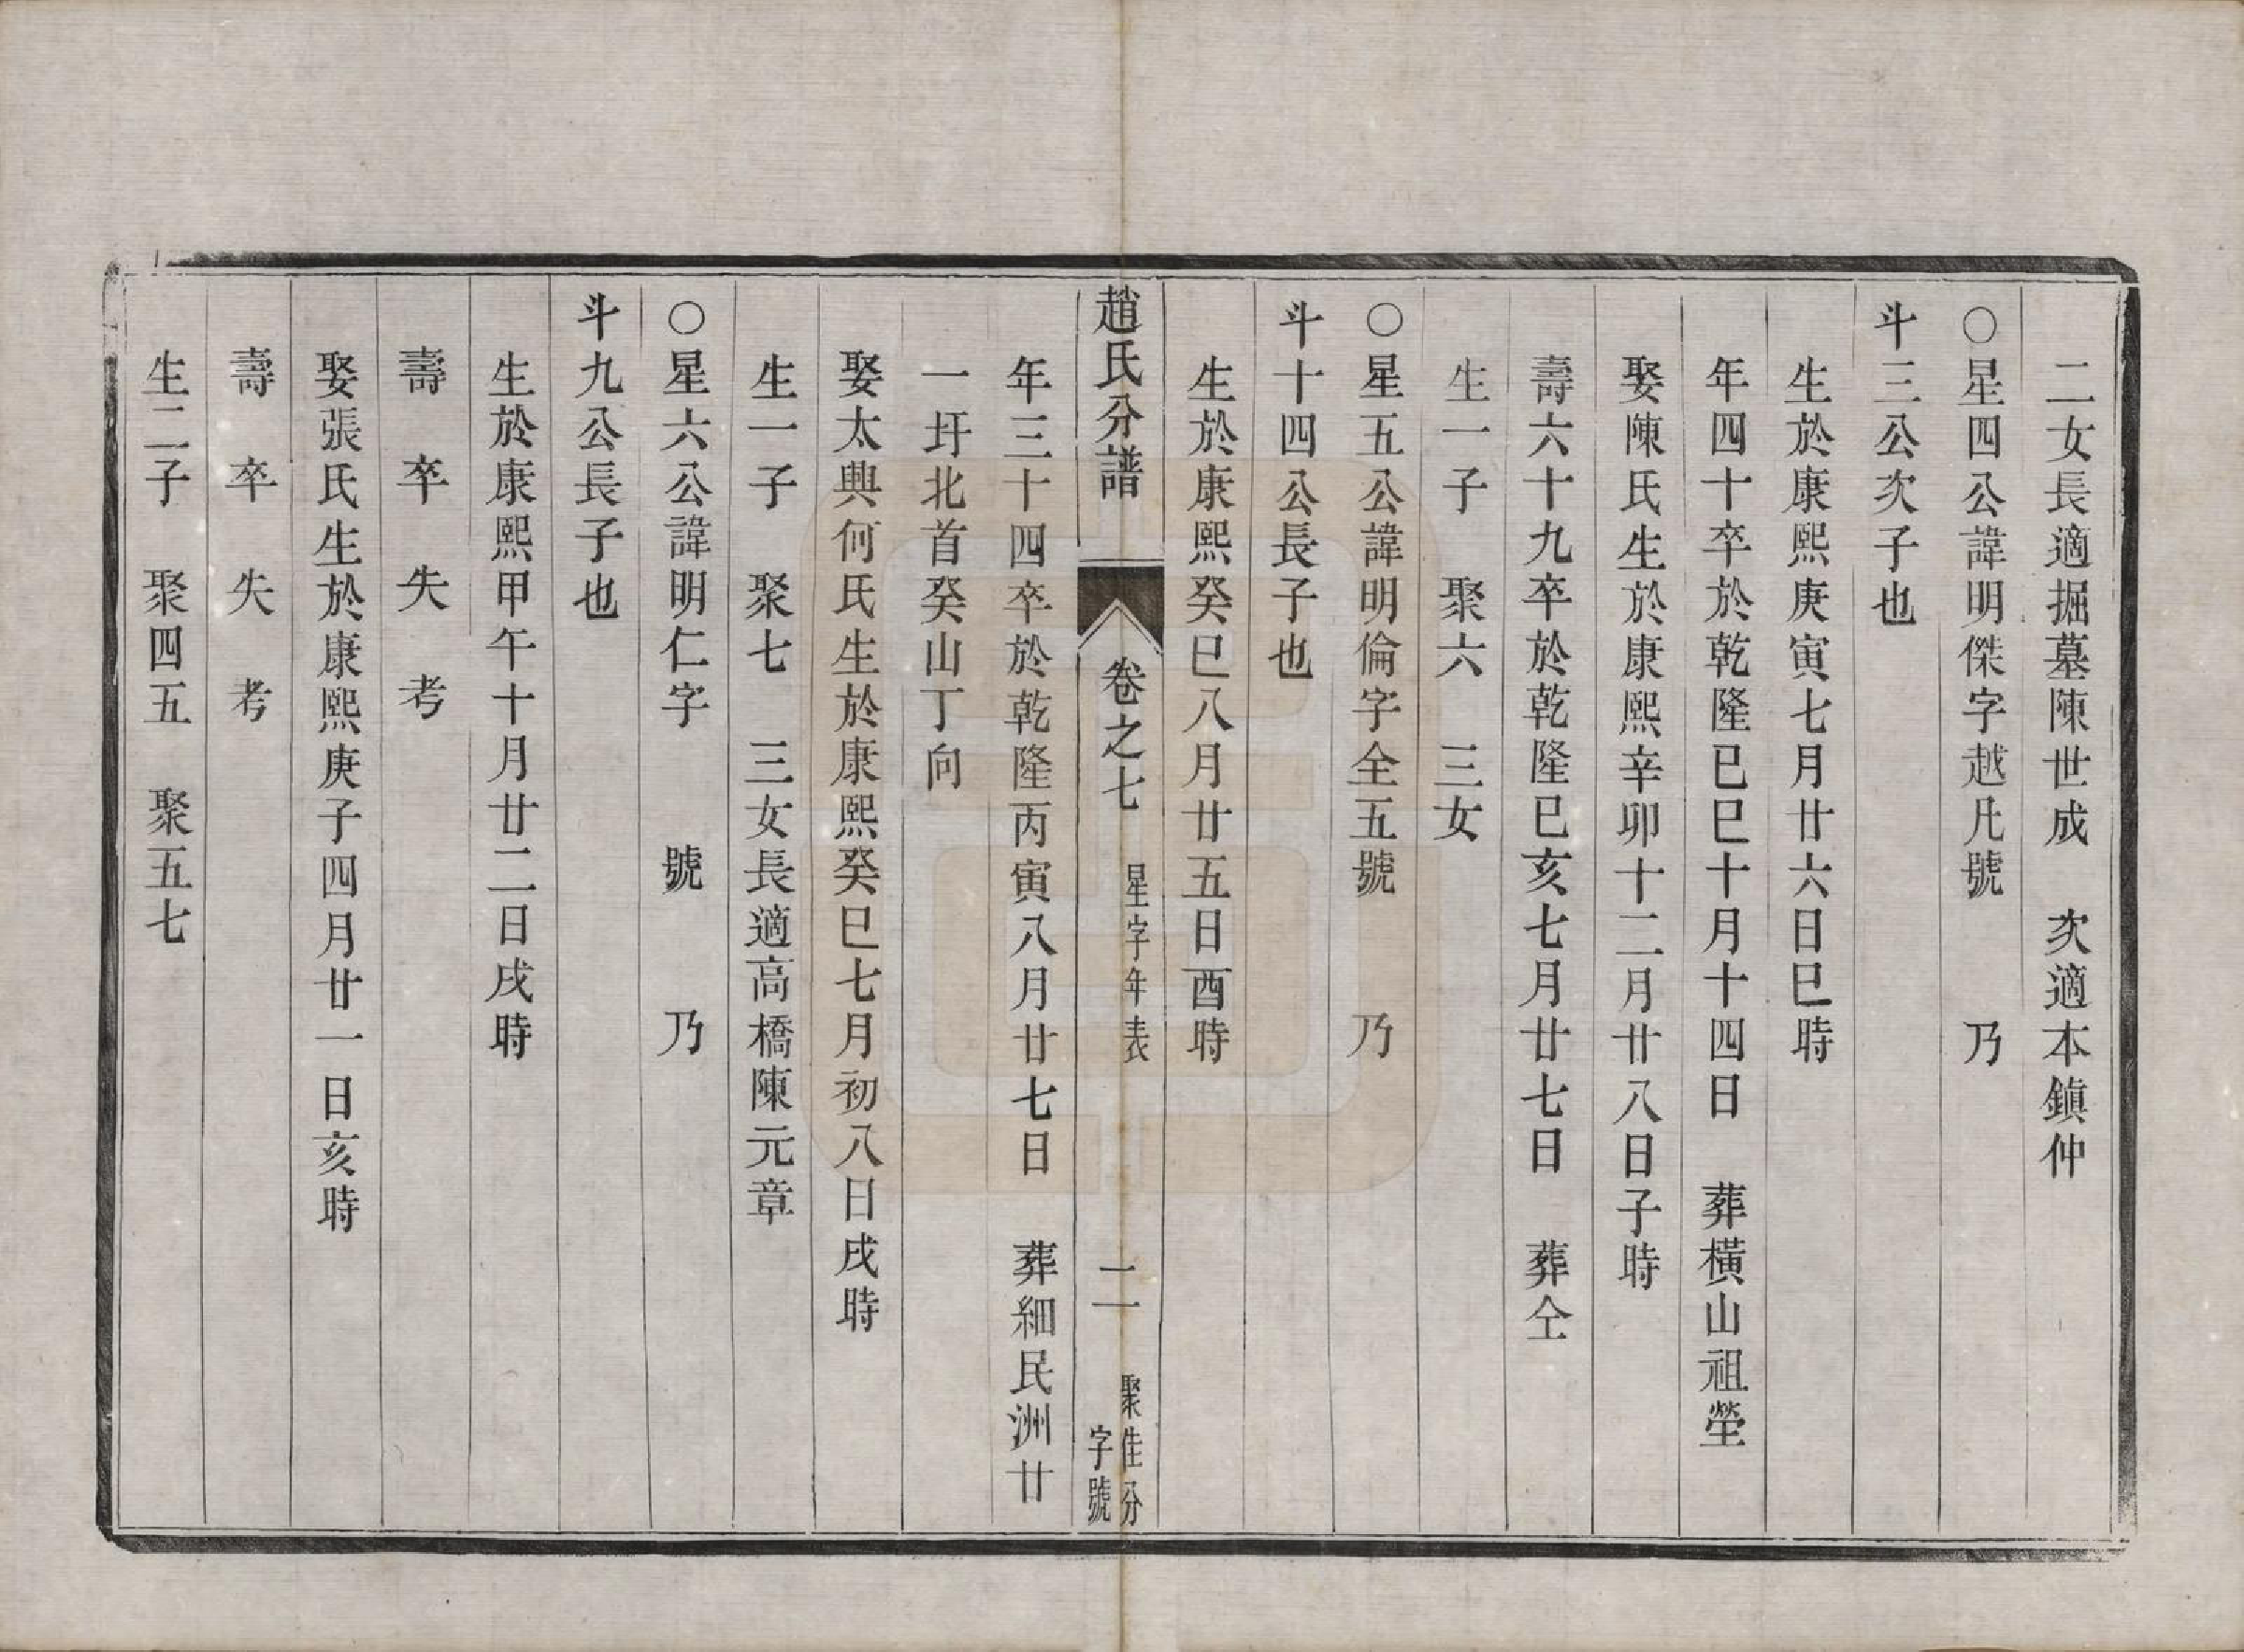 二女長適掘墓陳世成　次適本鎭仲
○星四公諱明傑字越凡號　　乃
斗三公次子也
生於康熙庚寅七月廿六日巳時
年四十卒於乾隆已巳十月十四日　葬橫山祖塋
娶陳氏生於康熙辛卯十二月廿八日子時
壽六十九卒於乾隆已亥七月廿七日　葬仝
生一子　聚六　三女
○星五公諱明倫字全五號　　乃
斗十四公長子也
生於康熙癸巳八月廿五日酉時
趙氏分譜　卷之七　星字年表　二　聚佳分字號
年三十四卒於乾隆丙寅八月廿七日　葬細民洲廿
一圩北首癸山丁向
娶太興何氏生於康熙癸巳七月初八日戌時
生一子　聚七　三女長適高橋陳元章
○星六公諱明仁字　　號　　乃
斗九公長子也
生於康熙甲午十月廿二日戌時
壽　卒　失　考
娶張氏生於康熙庚子四月廿一日亥時
壽　卒　失　考
生二子　聚四五　聚五七